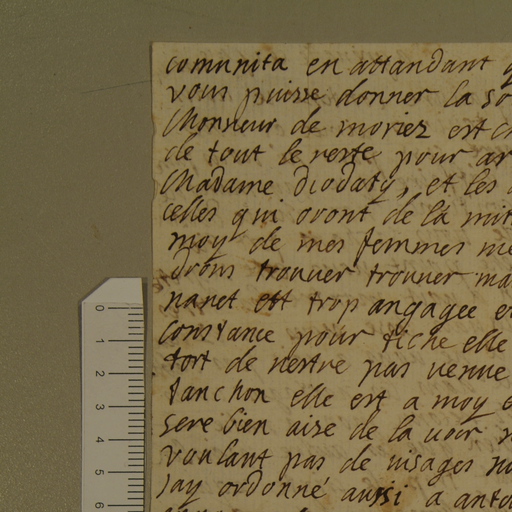 comunita en attandant q
vous puisse donner la so
Monsieur de moriez est c
de tout le reste pour ar
Madame diodaty, et les
celles qui oront de la mit
moy de mes femmes me
drois trouuer trouuer ma
nanet est trop angagee e
Constance pour fiche elle
tort de nestre pas uenue
fanchon elle est a moy e
sere bien aise de la uoir
voulant pas de uisages no
jay ordonné aussi a anto
0
1
2
3
4
5
6